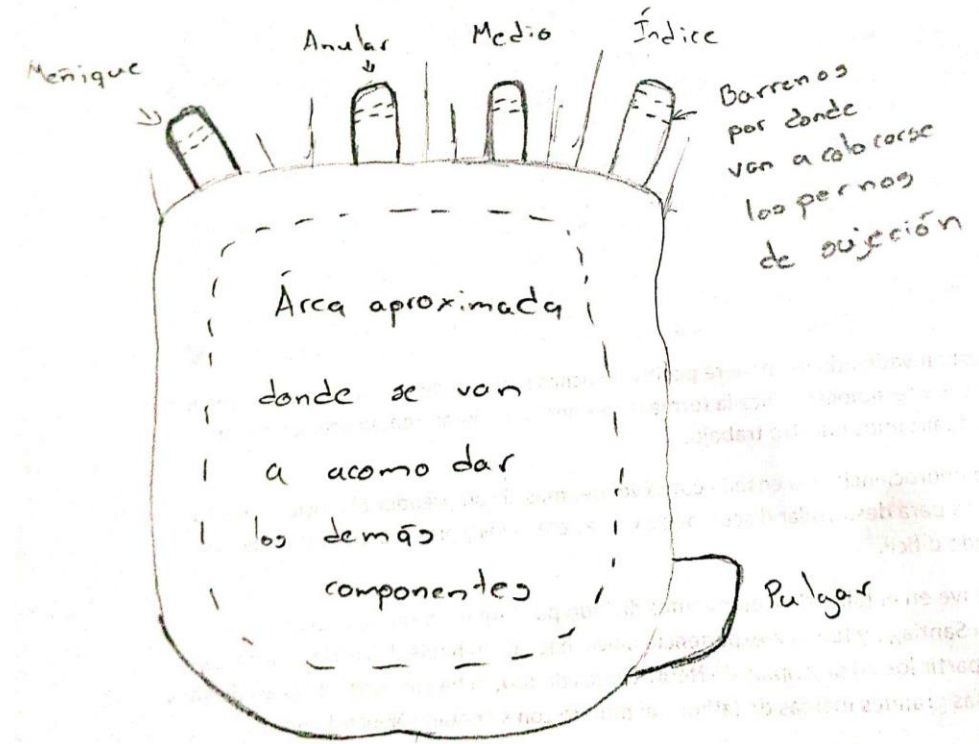 Meñique
Anular
Medio
Índice
Barrenos
por donde
van a colocarse
los pernos
de sujeción
Área aproximada
donde se van
a acomodar
los demás
componentes
Pulgar